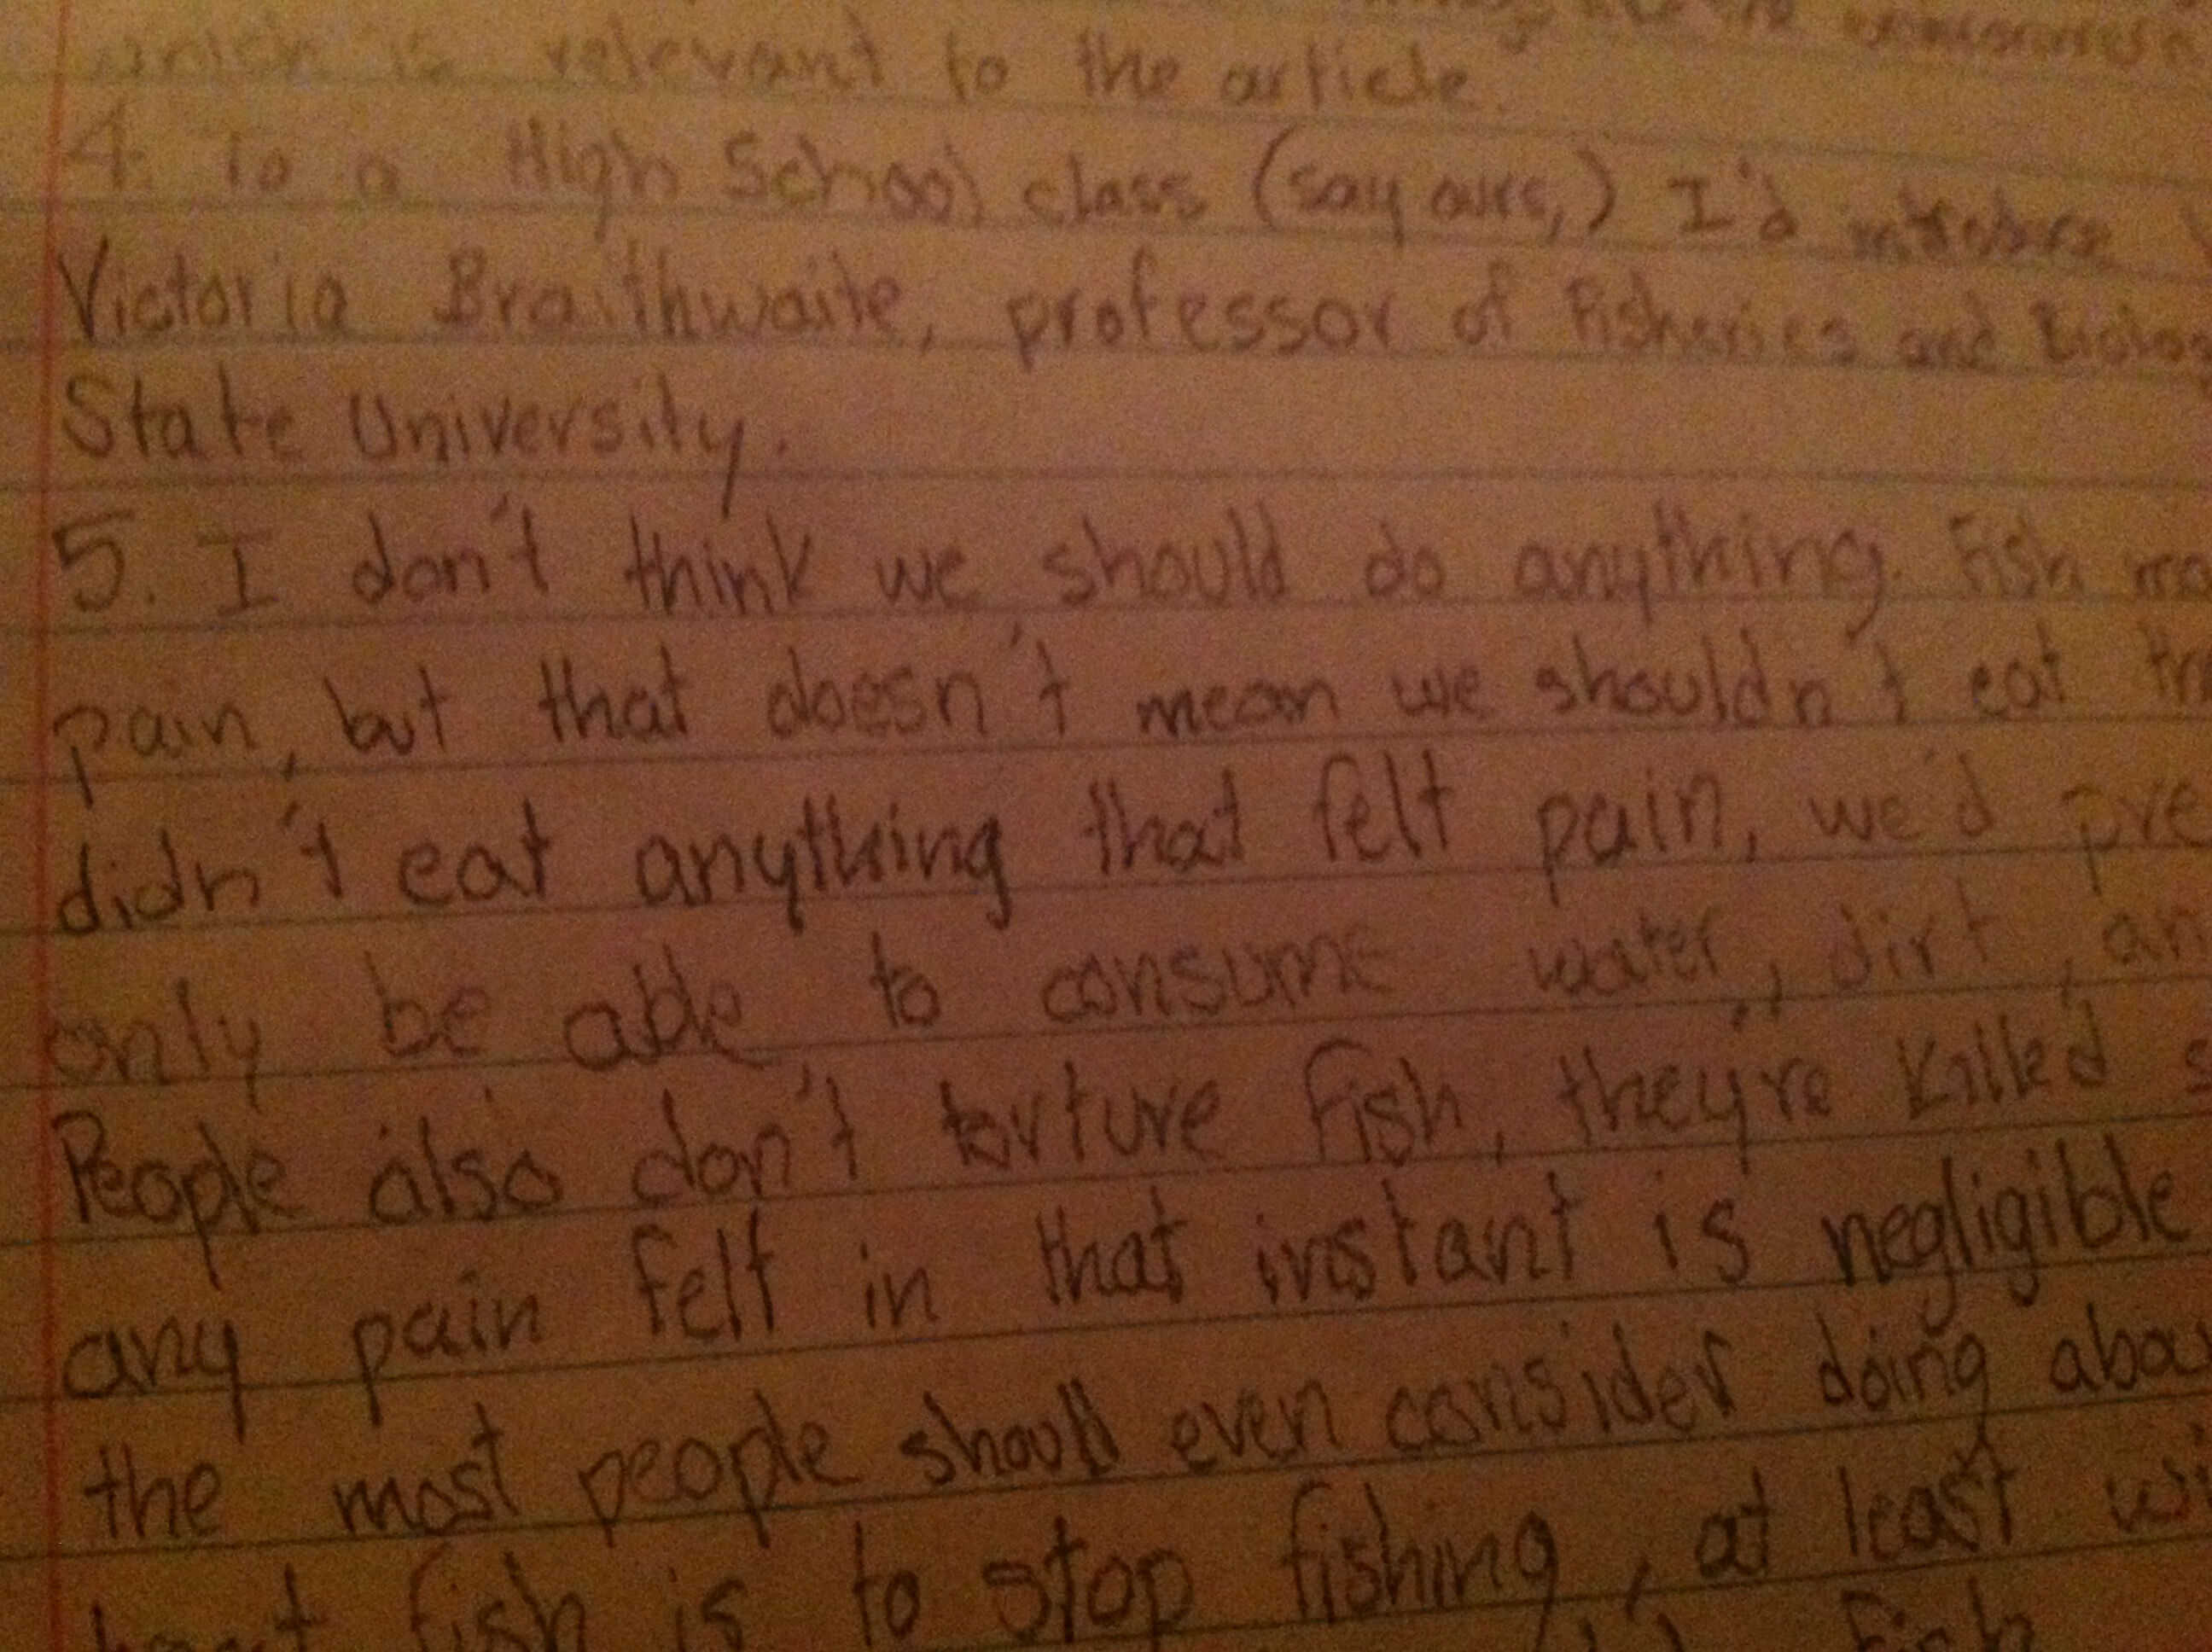 which is relevant to the article.
4. To a High School class (say ours,) I'd introduce
Victoria Braithwaite, professor of Fisheries and Biolog
State University.
5. I don't think we should do anything. Fish ma
pain, but that doesn't mean we shouldn't eat
didn't eat anything that felt pain, we'd pre
only be able to consume water, dirt, an
People also don't torture fish, they're killed s
any pain felt in that instant is negligible
the most people should even consider doing abou
fish is to stop fishing, at least wi
fish